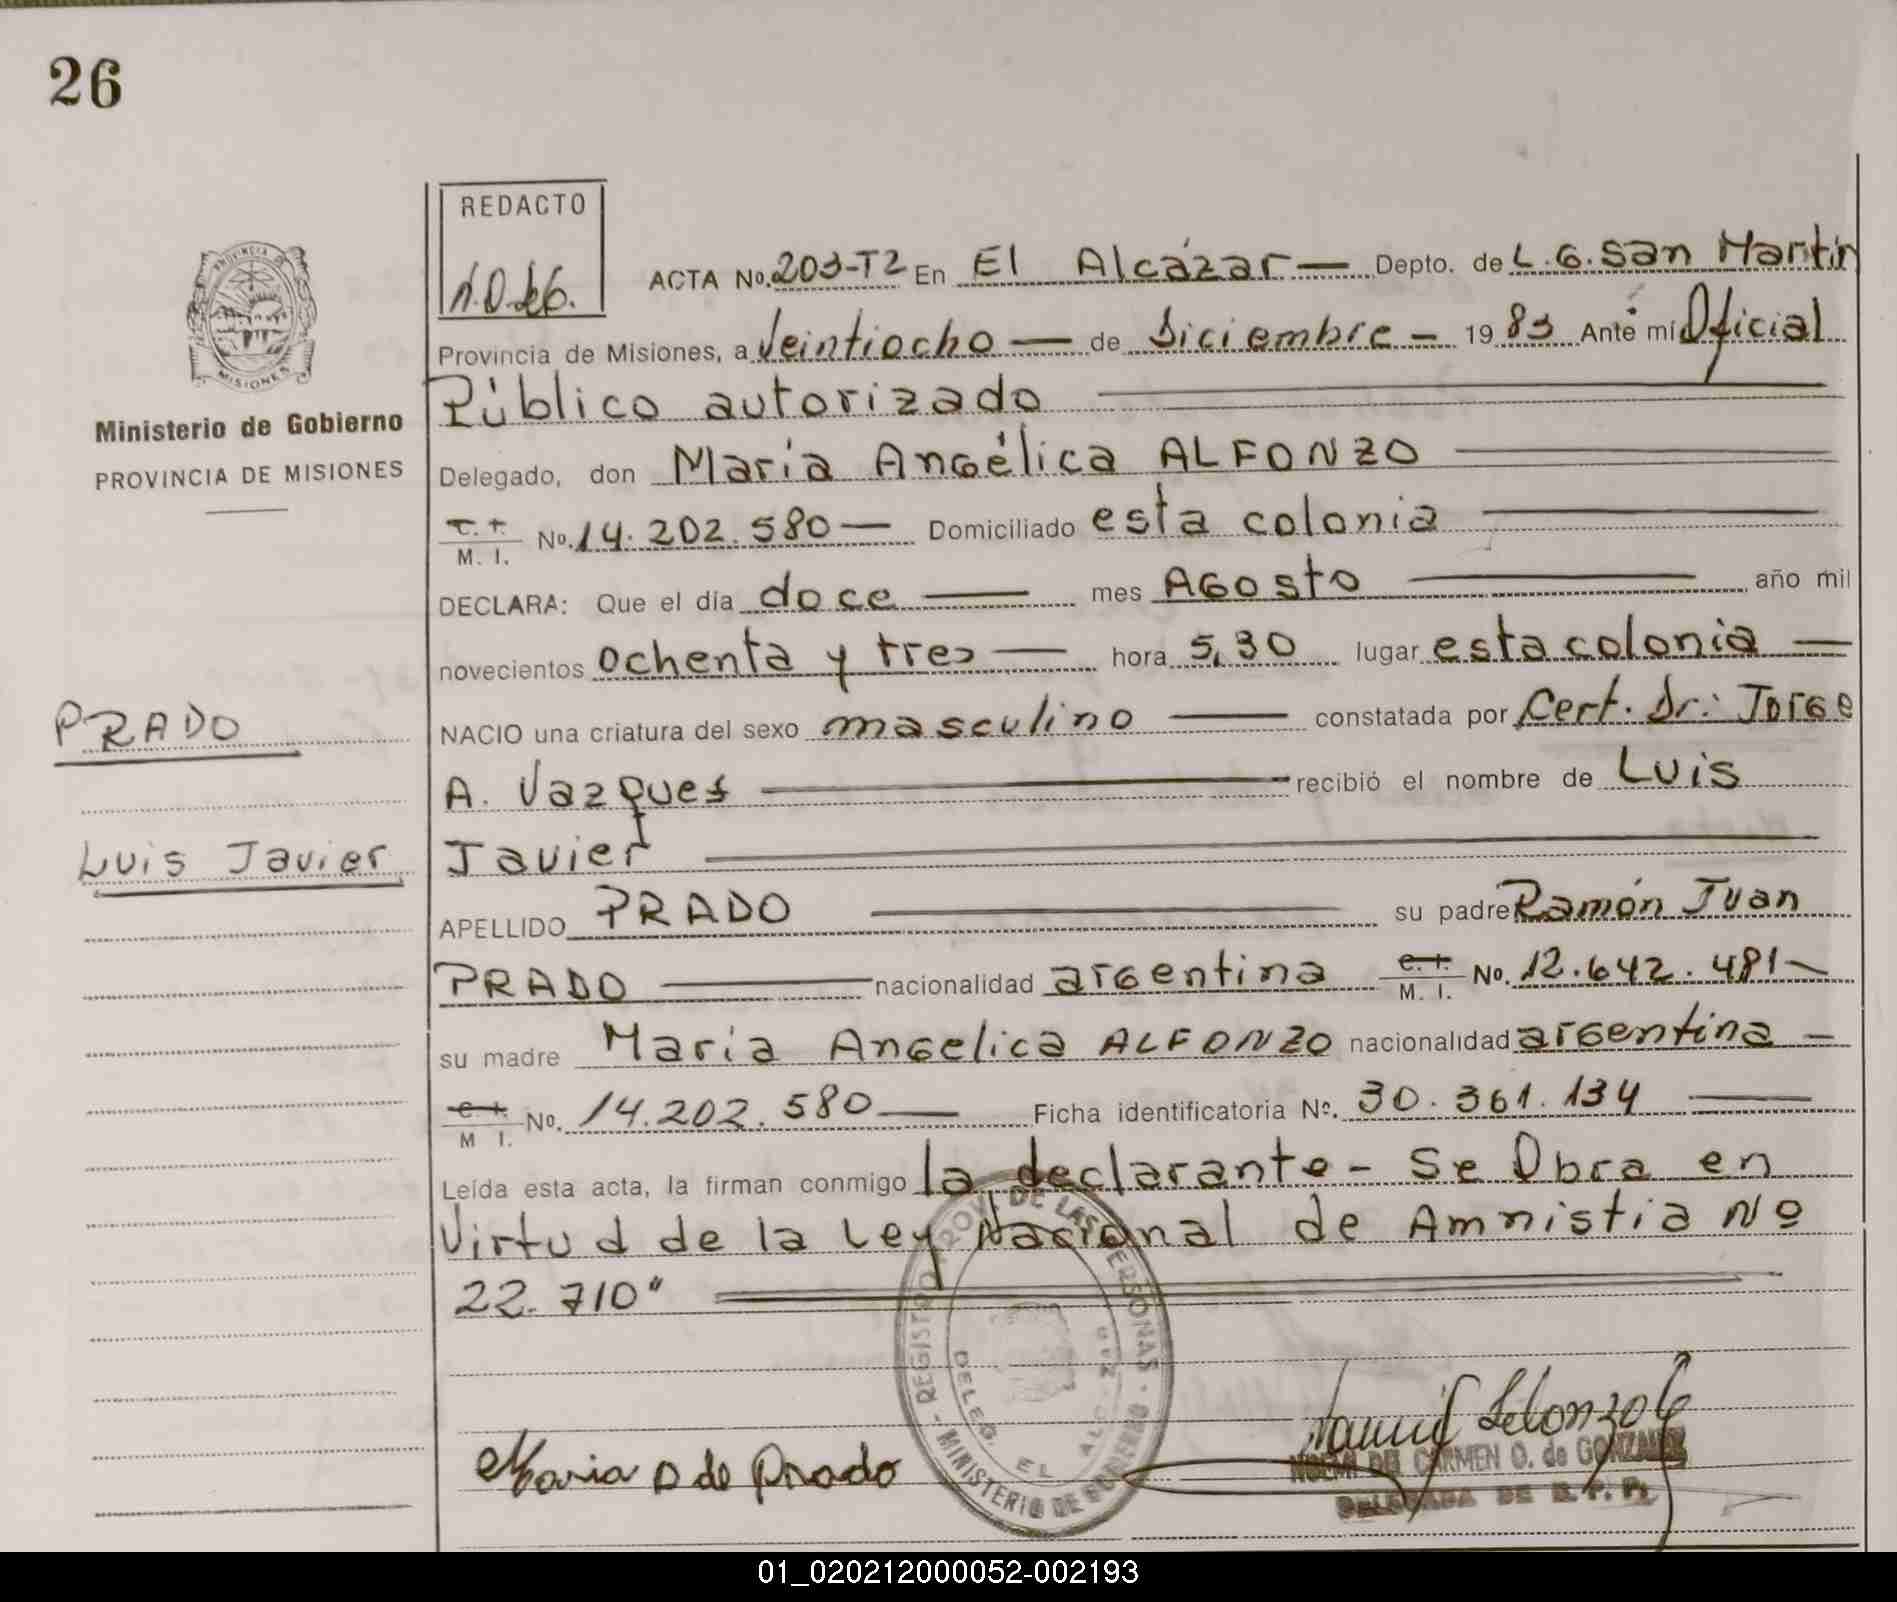 26
REDACTO
N.O.deG.
PROVINCIA DE
MISIONES
Ministerio de Gobierno
PROVINCIA DE MISIONES
ACTA No. 203-T2 En El Alcázar — Depto. de L. G. San Martín
Provincia de Misiones, a Veintiocho — de Diciembre - 1983 Ante mí Oficial
Público autorizado
Delegado, don María Angélica ALFONZO
C. I. M. I. No. 14.202.580 — Domiciliado esta colonia
DECLARA: Que el día doce — mes Agosto — año mil
novecientos ochenta y tres — hora 5,30 lugar esta colonia —
PRADO
NACIO una criatura del sexo masculino — constatada por Cert. Dr.: Jorge
A. Vazques — recibió el nombre de Luis
Luis Javier
Javier
APELLIDO PRADO — su padre Ramón Juan
PRADO — nacionalidad argentina C. I. M. I. No. 12.642.481 —
su madre María Angelica ALFONZO nacionalidad argentina —
C. I. M I. No. 14.202.580 — Ficha identificatoria No. 30.361.134 —
Leída esta acta, la firman conmigo la declarante - Se Obra en
Virtud de la Ley Nacional de Amnistia Nº
22.710"
REGISTRO PROV. DE LAS PERSONAS
MINISTERIO DE GOBIERNO
DELEG. EL ALCAZAR
Maria A de Prado
NOEMI DEL CARMEN O. de GONZALEZ
DELEGADA DE R. P. P.
01_020212000052-002193